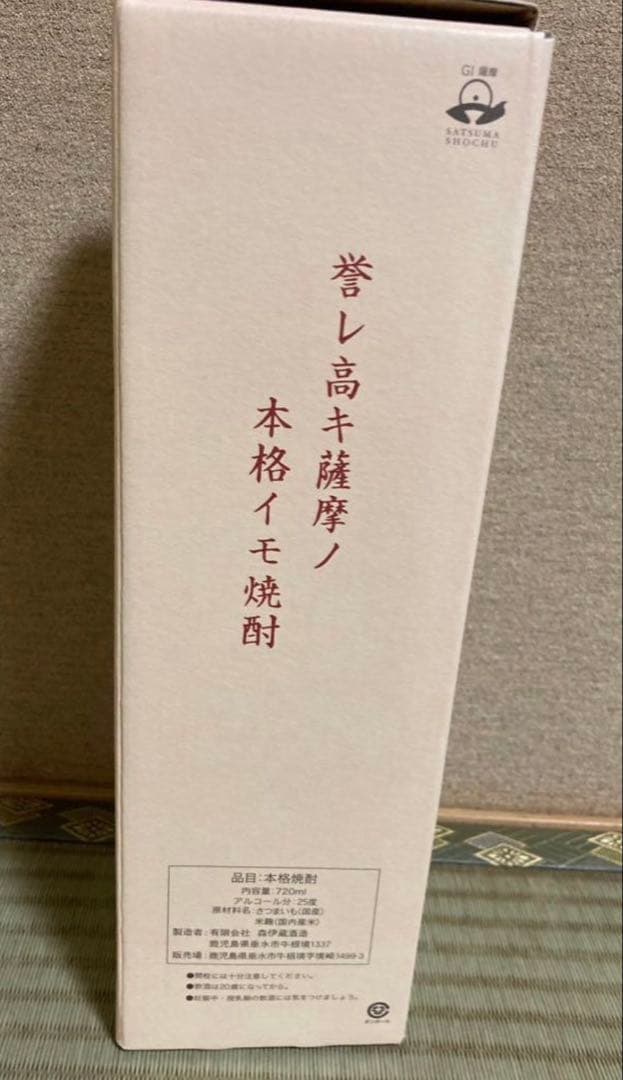 GI 薩摩
SATSUMA
SHOCHU
誉レ高キ薩摩ノ
本格イモ焼酎
品目:本格焼酎
内容量:720ml
アルコール分:25度
原材料名:さつまいも(国産)
米麹(国内産米)
製造者:有限会社 森伊蔵酒造
鹿児島県垂水市牛根境1337
販売場:鹿児島県垂水市牛根境字境崎1499-3
●開栓には十分注意してください。
●飲酒は20歳になってから。
●妊娠中・授乳期の飲酒には気をつけましょう。
ダンボール